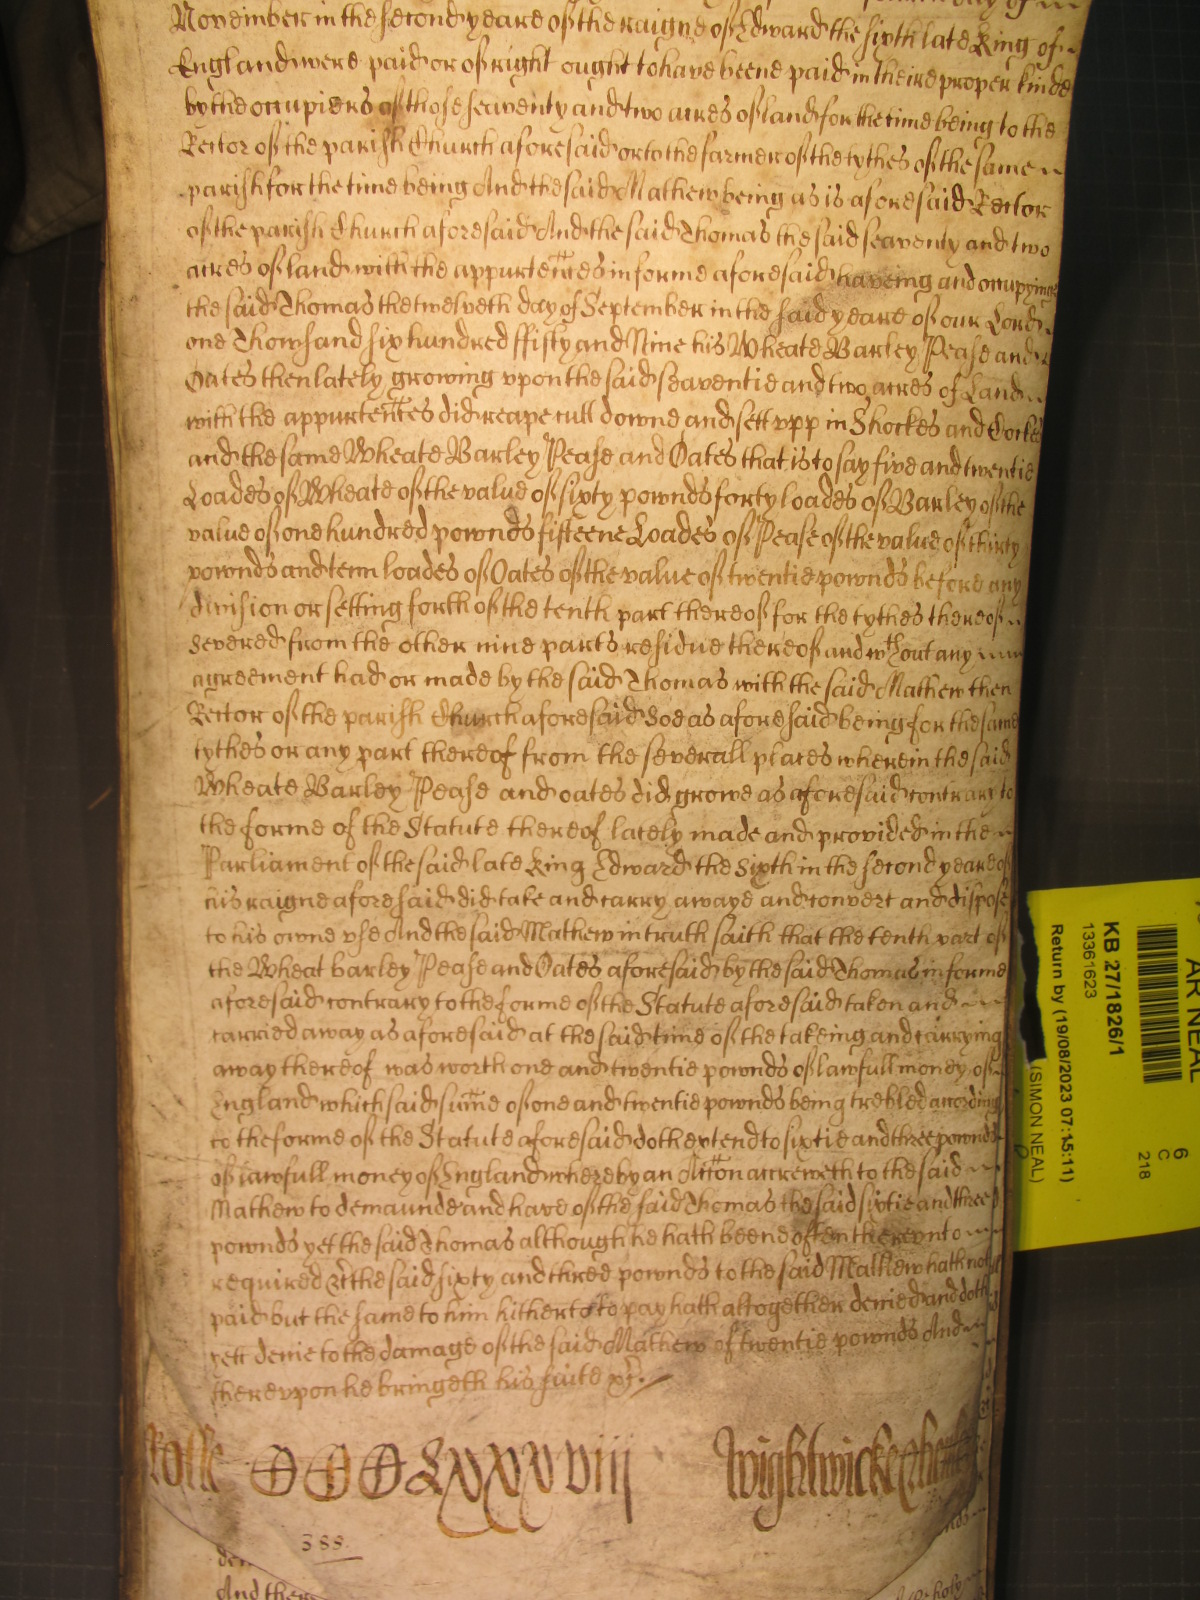 November in the second yeare of the raigne of Edward the sixth late King of
England were paid or of right ought to have beene paid in theire proper kinde
by the occupiers of those seaventy and two acres of land for the time being to the
Rector of the parish Church aforesaid or to the farmer of the tythes of the same
parish for the time being And the said Mathew being as is aforesaid Rector
of the parish Church aforesaid And the said Thomas the said seaventy and two
acres of land with the appurtences in forme aforesaid haveing and occupying
the said Thomas the twelveth day of September in the said yeare of our Lord
one Thowsand six hundred ffifty and Nine his Wheate Barley Pease and
Oates then lately growing vpon the said seaventie and two acres of Land
with the appurtences did reape cutt downe and sett vpp in Shockes and Cockes
and the same Wheate Barley Pease and Oates that is to say five and twentie
Loades of Wheate of the value of sixty pownds forty loades of Barley of the
value of one hundred pownds fifteene Loades of Pease of the value of thirty
pownds and tenn loades of Oates of the value of twentie pownds before any
division or setting forth of the tenth part thereof for the tythes thereof
severed from the other nine parts residue thereof and wthout any
agreement had or made by the said Thomas with the said Mathew then
Rector of the parish Church aforesaid soe as aforesaid being for the same
tythes or any part thereof from the severall places wherein the said
Wheate Barley Pease and oates did growe as aforesaid contrary to
the forme of the Statute thereof lately made and provided in the
Parliament of the said late King Edward the Sixth in the second yeare of
his raigne aforesaid did take and carry awaye and convert and dispose
to his owne vse And the said Mathew in truth saith that the tenth part of
the Wheat barley Pease and Oates aforesaid by the said Thomas in forme
aforesaid contrary to the forme of the Statute aforesaid taken and
carried away as aforesaid at the said time of the takeing and carrying
away thereof was worth one and twentie pownds of lawfull money of
England which said sume of one and twentie pownds being trebled according
to the forme of the Statute aforesaid doth extend to sixtie and three pownds
of lawfull money of England whereby an Accon accreweth to the said
Mathew to demaunde and have of the said Thomas the said sixtie and three
pownds yet the said Thomas although he hath beene often therevnto
required &c the said sixty and three pownds to the said Mathew hath not
paid but the same to him hitherto to pay hath altogether denied and doth
yett denie to the damage of the said Mathew of twentie pownds And
therevpon he bringeth his suite &c
Rolle CCCLxxxviij Wightwicke
388
And there
KB 27/1826/1
13361623
Return by (19/08/2023 07:15:11)
(SIMON NEAL)
AR NEAL
6
C
218